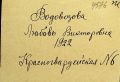 4576
Водовозова
Любовь Викторовна
1922
Красногвардейская №6